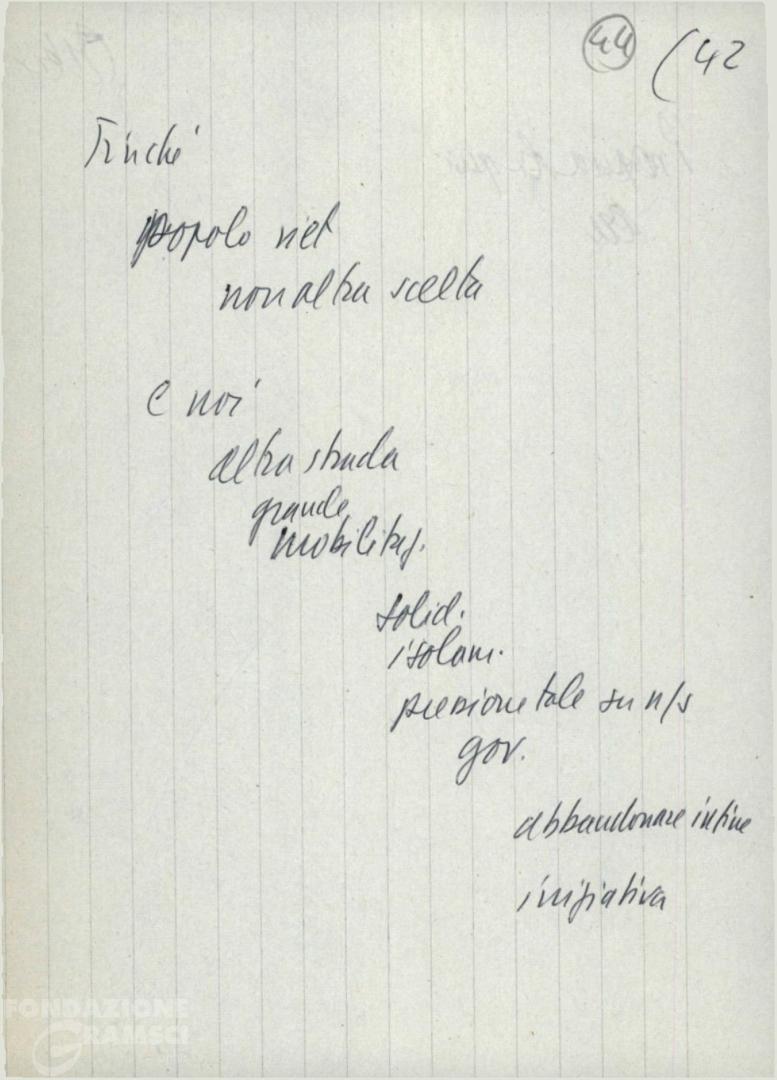 44 (42
Finché
popolo viet
non altra scelta
E noi
altra strada
grande
mobilitaz.
solid.
isolam.
pressione tale su n/s
gov.
abbandonare infine
iniziativa
FONDAZIONE
GRAMSCI